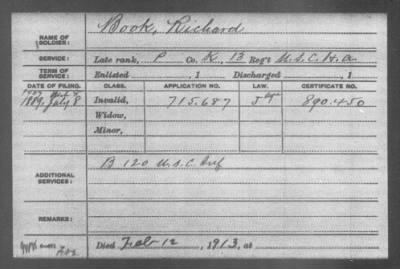 NAME OF SOLDIER: Book, Richard
SERVICE: Late rank, P Co. K, 13 Reg't U.S.C.H.A.
TERM OF SERVICE: Enlisted , 1 Discharged , 1
DATE OF FILING. CLASS. APPLICATION NO. LAW. CERTIFICATE NO.
1889, July 8 Invalid, 715.687 890.450
Widow,
Minor,
ADDITIONAL SERVICES: B 120 U.S.C. Inf
REMARKS:
Died Feb 12, 1913, at